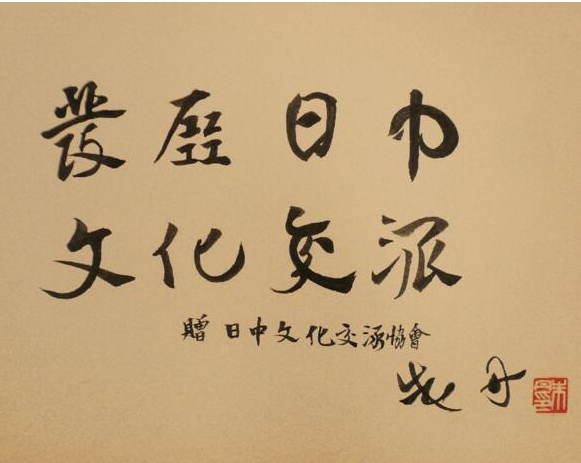 發展日中
文化交流
贈 日中文化交流協會
朱丹